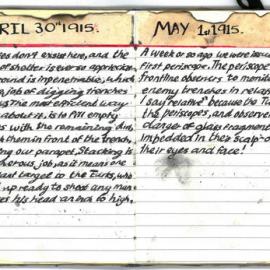 RIL 30th 1915.
es don't exist here, and the
of shelter is ever so appreciated
ound is impenetrable, which
a job of digging trenches
us. The most efficient way
about it, is to fill empty
s with the remaining dirt,
them in front of the trench,
ing our parapet. Stacking is
herous job, as it means one
ant target to the Turks, who
up ready to shoot any man
es his head an inch to high.
MAY 1st 1915.
A week or so ago we were issue
first periscope. The periscope
frontline observers to monito
enemy trenches in relati
I say 'relative' because the Tu
the periscopes, and observe
danger of glass fragmen
impedded in their scalp-o
their eyes and face!